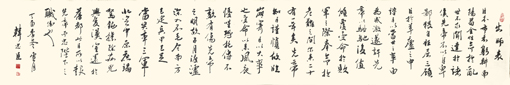 出師表
臣本布衣躬耕南
陽苟全性命於亂
世不求聞達於諸
侯先帝不以臣卑
鄙猥自枉屈三顧
臣於草廬之中
諮臣以當世之事由
是感激遂許先
帝以驅馳後值
傾覆受命於敗
軍之際奉命於
危難之間爾來二十
有一年矣先帝
知臣謹慎故臨
崩寄臣以大事
也受命以來夙夜
憂嘆恐託付不
效以傷先帝
之明故五月渡瀘
深入不毛今南方
已定兵甲已足
當獎率三軍
北定中原庶竭
駑鈍攘除奸凶
興復漢室還於
舊都此臣所以報
先帝而忠陛下之
職分也